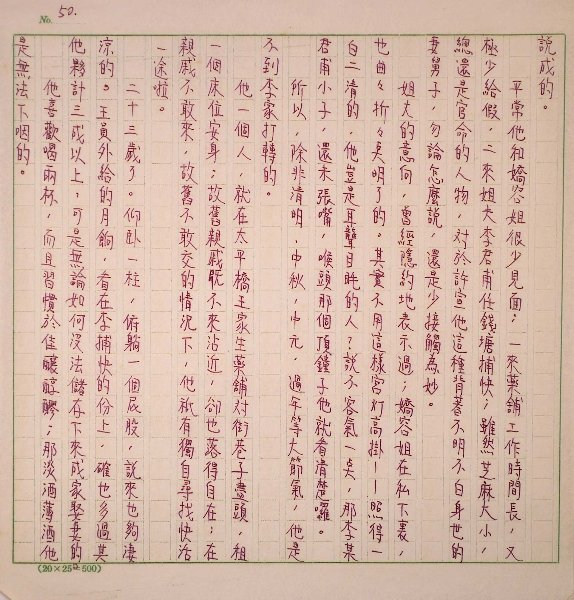 No. 50.
說成的。
平常他和嬌容姐很少見面；一來藥舖工作時間長，又
極少給假，二來姐夫李君甫任錢塘捕快；雖然芝麻大小，
總還是官命的人物，對於許宣他這種背著不明不白身世的
妻舅子，勿論怎麼說，還是少接觸為妙。
姐夫的意向，曾經隱約地表示過；嬌容姐在私下裏，
也曲々折々點明了的。其實不用這樣宮灯高掛——照得一
白二清的，他豈是耳聾目盹的人？說不客氣一點，那李某
君甫小子，還未張嘴，喉頭那個頂鐘子他就看清楚囉。
所以，除非清明，中秋，中元，過年等大節氣，他是
不到李家打轉的。
他一個人，就在太平橋王家生藥舖对街巷子盡頭，租
一個床位安身；故舊親戚旣不來沾近，卻也落得自在；在
親戚不敢來，故舊不敢交的情況下，他祇有獨自尋找快活
一途啦。
二十三歲了。仰卧一柱，俯躺一個屁股，說來也夠淒
涼的。王員外給的月餉，看在李捕快的份上，確也多過其
他夥計三成以上，可是無論如何沒法儲存下來成家娶妻的
他喜歡喝兩杯，而且習慣於佳釀醇醪；那淡酒薄酒他
是無法下咽的。
(20×25＝500)